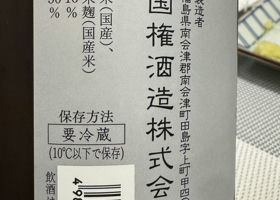 製造者
福島県南会津郡南会津町田島字上町甲四
国権酒造株式会
米(国産)、
米麹(国産米)
10%
保存方法
要冷蔵
(10℃以下で保存)
飲酒は
498